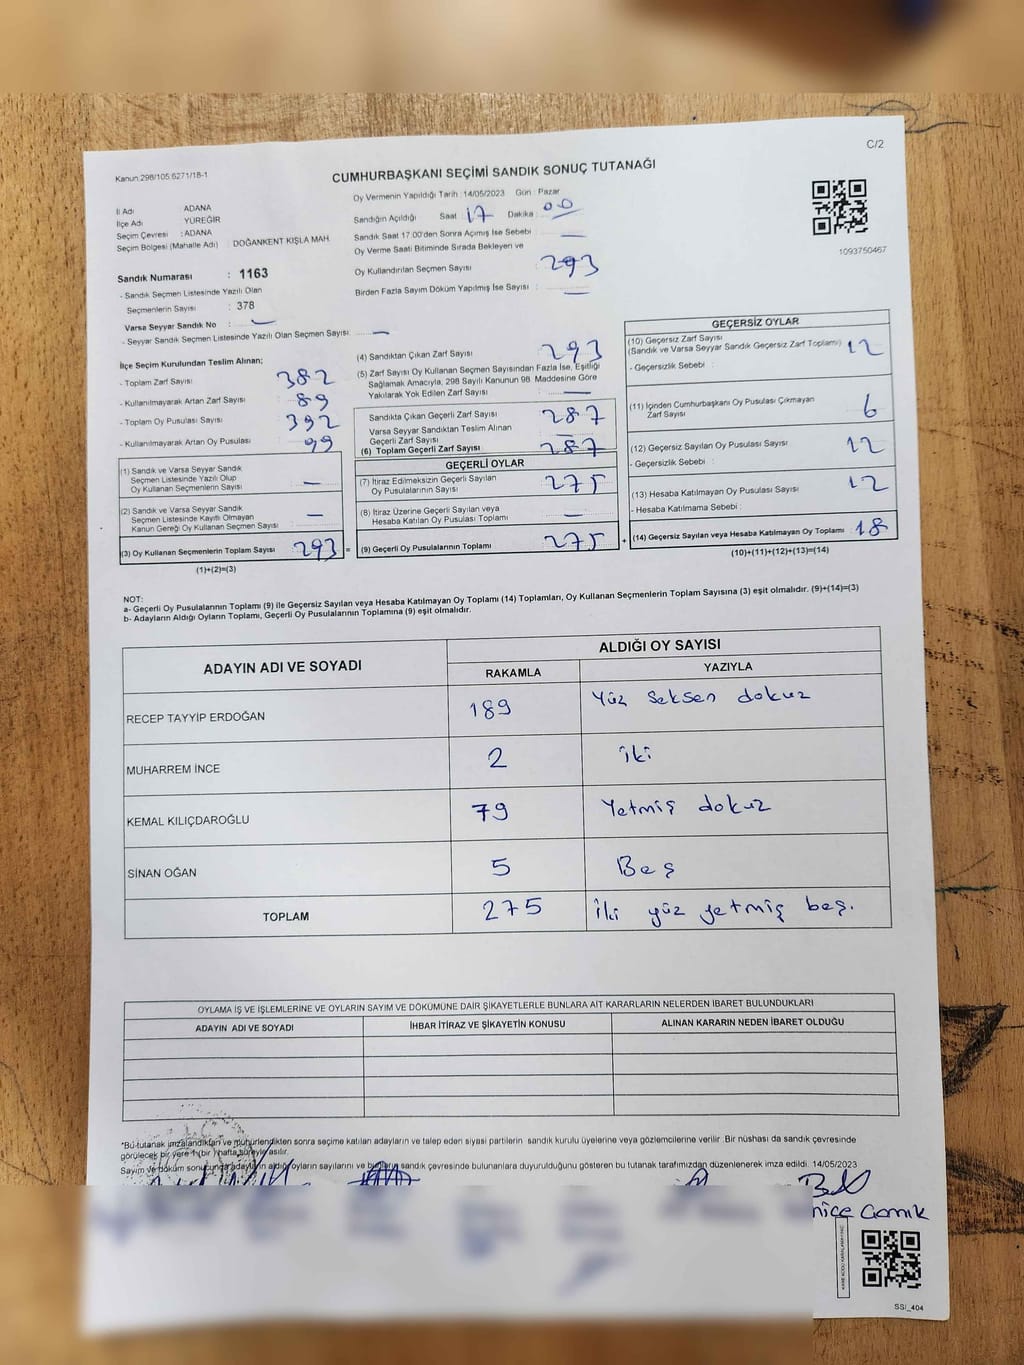 C/2
Kanun.298/105.6271/18-1
CUMHURBAŞKANI SEÇİMİ SANDIK SONUÇ TUTANAĞI
Oy Vermenin Yapıldığı Tarih : 14/05/2023 Gün : Pazar
İl Adı ADANA
İlçe Adı YÜREĞİR
Seçim Çevresi : ADANA
Seçim Bölgesi (Mahalle Adı) : DOĞANKENT KIŞLA MAH.
Sandığın Açıldığı Saat 17 Dakika : 00
Sandık Saat 17.00'den Sonra Açılmış İse Sebebi : —
Oy Verme Saati Bitiminde Sırada Bekleyen ve
Oy Kullandırılan Seçmen Sayısı : 293
Birden Fazla Sayım Döküm Yapılmış İse Sayısı : —
1093750467
Sandık Numarası : 1163
- Sandık Seçmen Listesinde Yazılı Olan
Seçmenlerin Sayısı : 378
Varsa Seyyar Sandık No : —
- Seyyar Sandık Seçmen Listesinde Yazılı Olan Seçmen Sayısı: —
İlçe Seçim Kurulundan Teslim Alınan;
- Toplam Zarf Sayısı 382
- Kullanılmayarak Artan Zarf Sayısı 89
- Toplam Oy Pusulası Sayısı 392
- Kullanılmayarak Artan Oy Pusulası 99
(1) Sandık ve Varsa Seyyar Sandık
Seçmen Listesinde Yazılı Olup
Oy Kullanan Seçmenlerin Sayısı —
(2) Sandık ve Varsa Seyyar Sandık
Seçmen Listesinde Kayıtlı Olmayan
Kanun Gereği Oy Kullanan Seçmen Sayısı : —
(3) Oy Kullanan Seçmenlerin Toplam Sayısı 293 =
(1)+(2)=(3)
(4) Sandıktan Çıkan Zarf Sayısı 293
(5) Zarf Sayısı Oy Kullanan Seçmen Sayısından Fazla İse, Eşitliği
Sağlamak Amacıyla, 298 Sayılı Kanunun 98. Maddesine Göre
Yakılarak Yok Edilen Zarf Sayısı : —
Sandıkta Çıkan Geçerli Zarf Sayısı 287
Varsa Seyyar Sandıktan Teslim Alınan
Geçerli Zarf Sayısı —
(6) Toplam Geçerli Zarf Sayısı 287
GEÇERLİ OYLAR
(7) İtiraz Edilmeksizin Geçerli Sayılan
Oy Pusulalarının Sayısı : 275
(8) İtiraz Üzerine Geçerli Sayılan veya
Hesaba Katılan Oy Pusulası Toplamı : —
(9) Geçerli Oy Pusulalarının Toplamı 275 +
GEÇERSİZ OYLAR
(10) Geçersiz Zarf Sayısı
(Sandık ve Varsa Seyyar Sandık Geçersiz Zarf Toplamı) 12
- Geçersizlik Sebebi :
(11) İçinden Cumhurbaşkanı Oy Pusulası Çıkmayan
Zarf Sayısı 6
(12) Geçersiz Sayılan Oy Pusulası Sayısı 12
- Geçersizlik Sebebi :
(13) Hesaba Katılmayan Oy Pusulası Sayısı 12
- Hesaba Katılmama Sebebi :
(14) Geçersiz Sayılan veya Hesaba Katılmayan Oy Toplamı : 18
(10)+(11)+(12)+(13)=(14)
NOT:
a- Geçerli Oy Pusulalarının Toplamı (9) ile Geçersiz Sayılan veya Hesaba Katılmayan Oy Toplamı (14) Toplamları, Oy Kullanan Seçmenlerin Toplam Sayısına (3) eşit olmalıdır. (9)+(14)=(3)
b- Adayların Aldığı Oyların Toplamı, Geçerli Oy Pusulalarının Toplamına (9) eşit olmalıdır.
ADAYIN ADI VE SOYADI
ALDIĞI OY SAYISI
RAKAMLA YAZIYLA
RECEP TAYYİP ERDOĞAN 189 Yüz seksen dokuz
MUHARREM İNCE 2 iki
KEMAL KILIÇDAROĞLU 79 Yetmiş dokuz
SİNAN OĞAN 5 Beş
TOPLAM 275 iki yüz yetmiş beş.
OYLAMA İŞ VE İŞLEMLERİNE VE OYLARIN SAYIM VE DÖKÜMÜNE DAİR ŞİKAYETLERLE BUNLARA AİT KARARLARIN NELERDEN İBARET BULUNDUKLARI
ADAYIN ADI VE SOYADI İHBAR İTİRAZ VE ŞİKAYETİN KONUSU ALINAN KARARIN NEDEN İBARET OLDUĞU
*Bu tutanak imzalandıktan ve mühürlendikten sonra seçime katılan adayların ve talep eden siyasi partilerin sandık kurulu üyelerine veya gözlemcilerine verilir. Bir nüshası da sandık çevresinde
görülecek bir yere 1 (bir) hafta süreyle asılır.
Sayım ve döküm sonucunda adayların aldığı oyların sayılarını ve bunların sandık çevresinde bulunanlara duyurulduğunu gösteren bu tutanak tarafımızdan düzenlenerek imza edildi. 14/05/2023
SSI_404